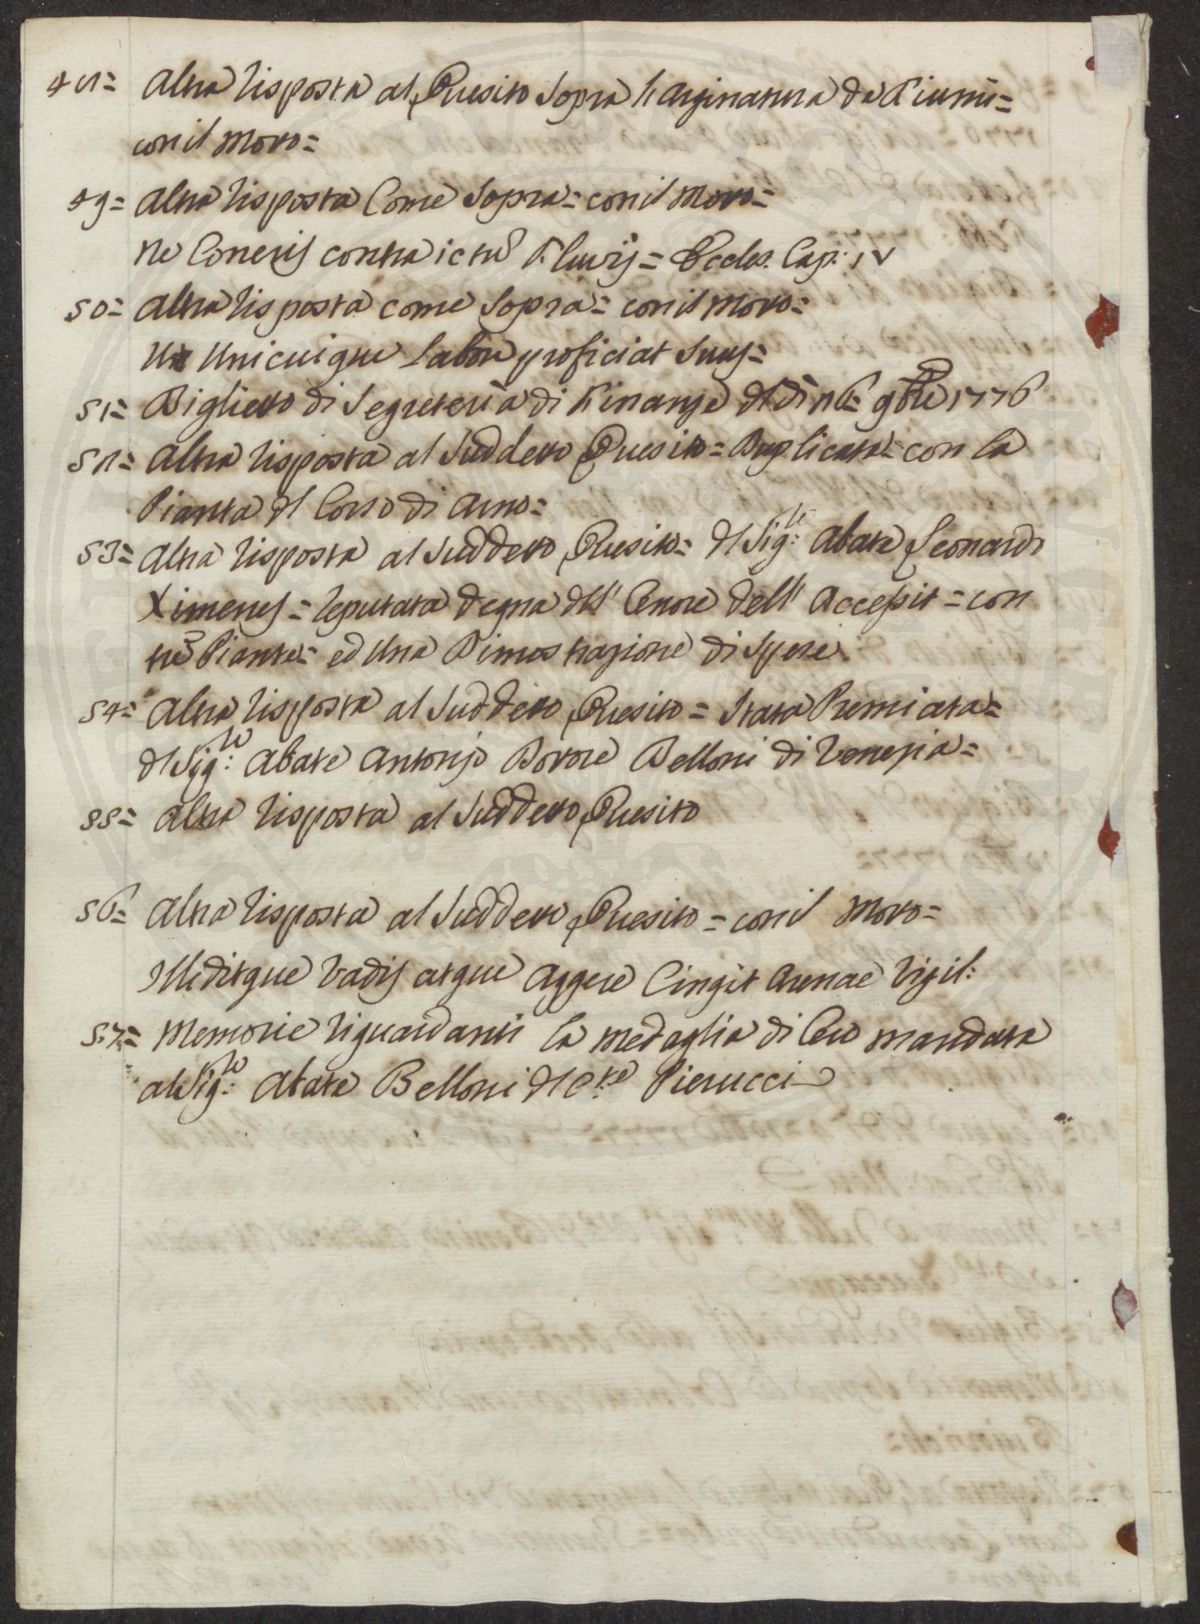 48= Altra Risposta al Quesito Sopra l'Arginatura de Fiumi=
con il Moto=
49= Altra Risposta Come Sopra= con il Moto=
Ne Coneris contra ictũ Fluvij= Eccles. Cap. IV
50= Altra Risposta come Sopra= con il Moto=
Ut Unicuique Labore proficiat Suus=
51= Biglietto di Segreteria di Finanze del dì 16= 9bre 1776
52= Altra Risposta al Suddetto Quesito= Duplicata= con la
Pianta del Corso di Arno=
53= Altra Risposta al Suddetto Quesito= del Sig:re Abate Leonardo
Ximenes= Reputata degna dell' Onore dell' Accessit= con
tre Piante= ed Una Dimostrazione di Spese
54= Altra Risposta al Suddetto Quesito= Stata Premiata=
del Sig:re Abate Antonio Belloni di Venezia=
55= Altra Risposta al Suddetto Quesito
56= Altra Risposta al Suddetto Quesito= con il Moto=
Illiditque Vadis atque Aggere Cingit Arenae Virgil:
57= Memorie riguardanti la Medaglia di Oro mandata
al Sig:re Abate Belloni del Pierucci